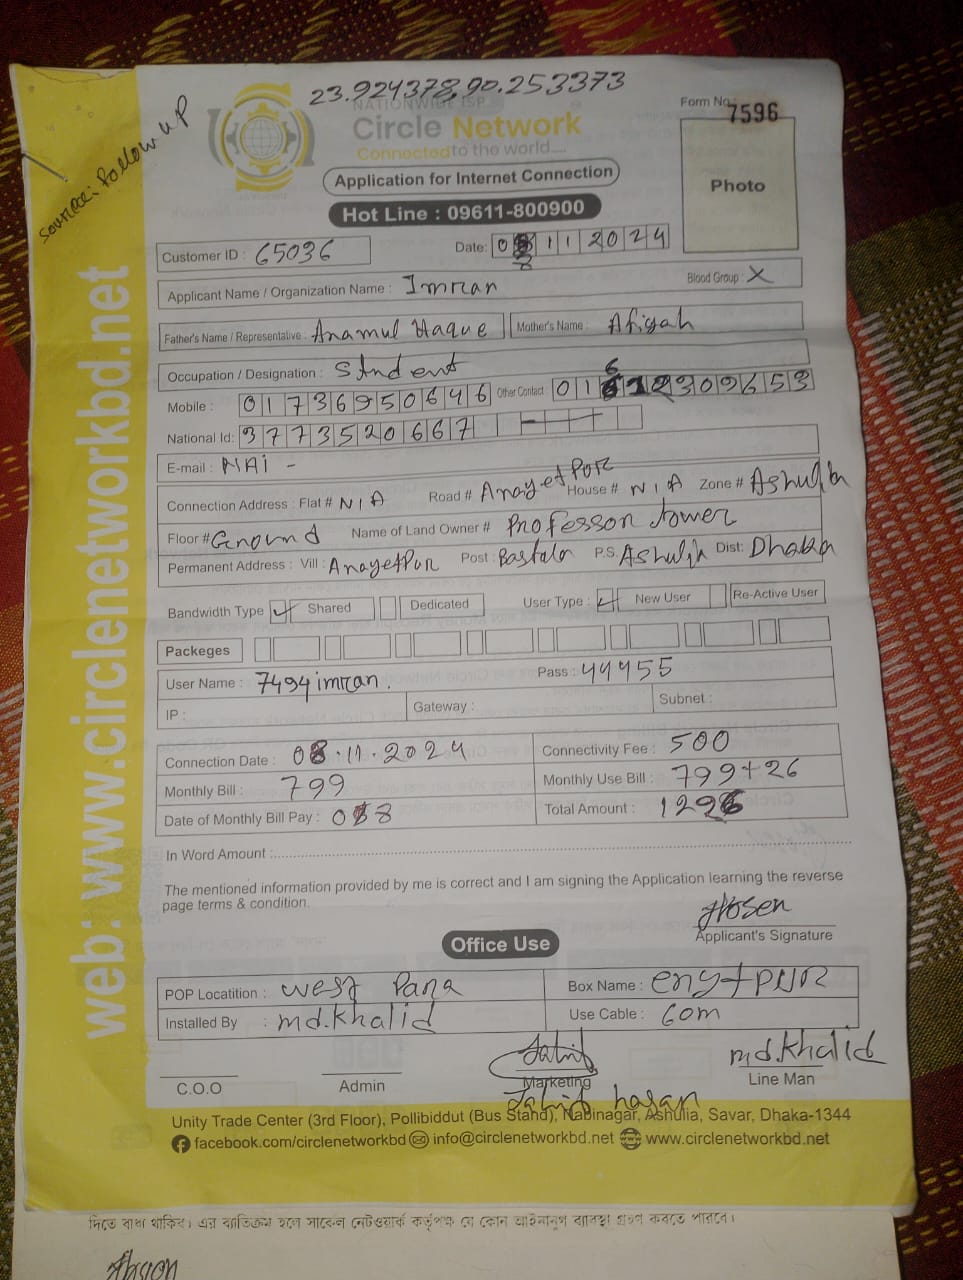 23.924378,90.253373
Source: Follow up
NATIONWIDE ISP
Circle Network
Connected to the world....
Form No. 7596
Photo
Application for Internet Connection
Hot Line : 09611-800900
Customer ID : 65036
Date: 08 11 2024
Applicant Name / Organization Name : Imran
Blood Group : X
Father's Name / Representative : Anamul Haque Mother's Name : Afiyah
Occupation / Designation : Student
Mobile : 01736950646 Other Contact
National Id: 3773520667
E-mail : NAi -
Connection Address : Flat # N/A Road # Anayetpur House # N/A Zone # Ashulia
Floor # Ground Name of Land Owner # Professor tower
Permanent Address : Vill : Anayetpur Post : P.S. Ashulia Dist: Dhaka
Bandwidth Type Shared Dedicated User Type : New User Re-Active User
Packeges
User Name : 7494imran. Pass : 44455
IP : Gateway : Subnet :
Connection Date : 08.11.2024 Connectivity Fee : 500
Monthly Bill : 799 Monthly Use Bill : 799+26
Date of Monthly Bill Pay : Total Amount :
In Word Amount :
The mentioned information provided by me is correct and I am signing the Application learning the reverse
page terms & condition.
Hosen
Applicant's Signature
Office Use
POP Locatition : west Para Box Name :
Installed By : md.khalid Use Cable : 60m
md.khalid
C.O.O Admin Marketing Line Man
Jahid hasan
Unity Trade Center (3rd Floor), Pollibiddut (Bus Stand), Nabinagar, Ashulia, Savar, Dhaka-1344
facebook.com/circlenetworkbd info@circlenetworkbd.net www.circlenetworkbd.net
web: www.circlenetworkbd.net
দিতে বাধ্য থাকিব। এর ব্যতিক্রম হলে সার্কেল নেটওয়ার্ক কর্তৃপক্ষ যে কোন আইনানুগ ব্যবস্থা গ্রহণ করতে পারবে।